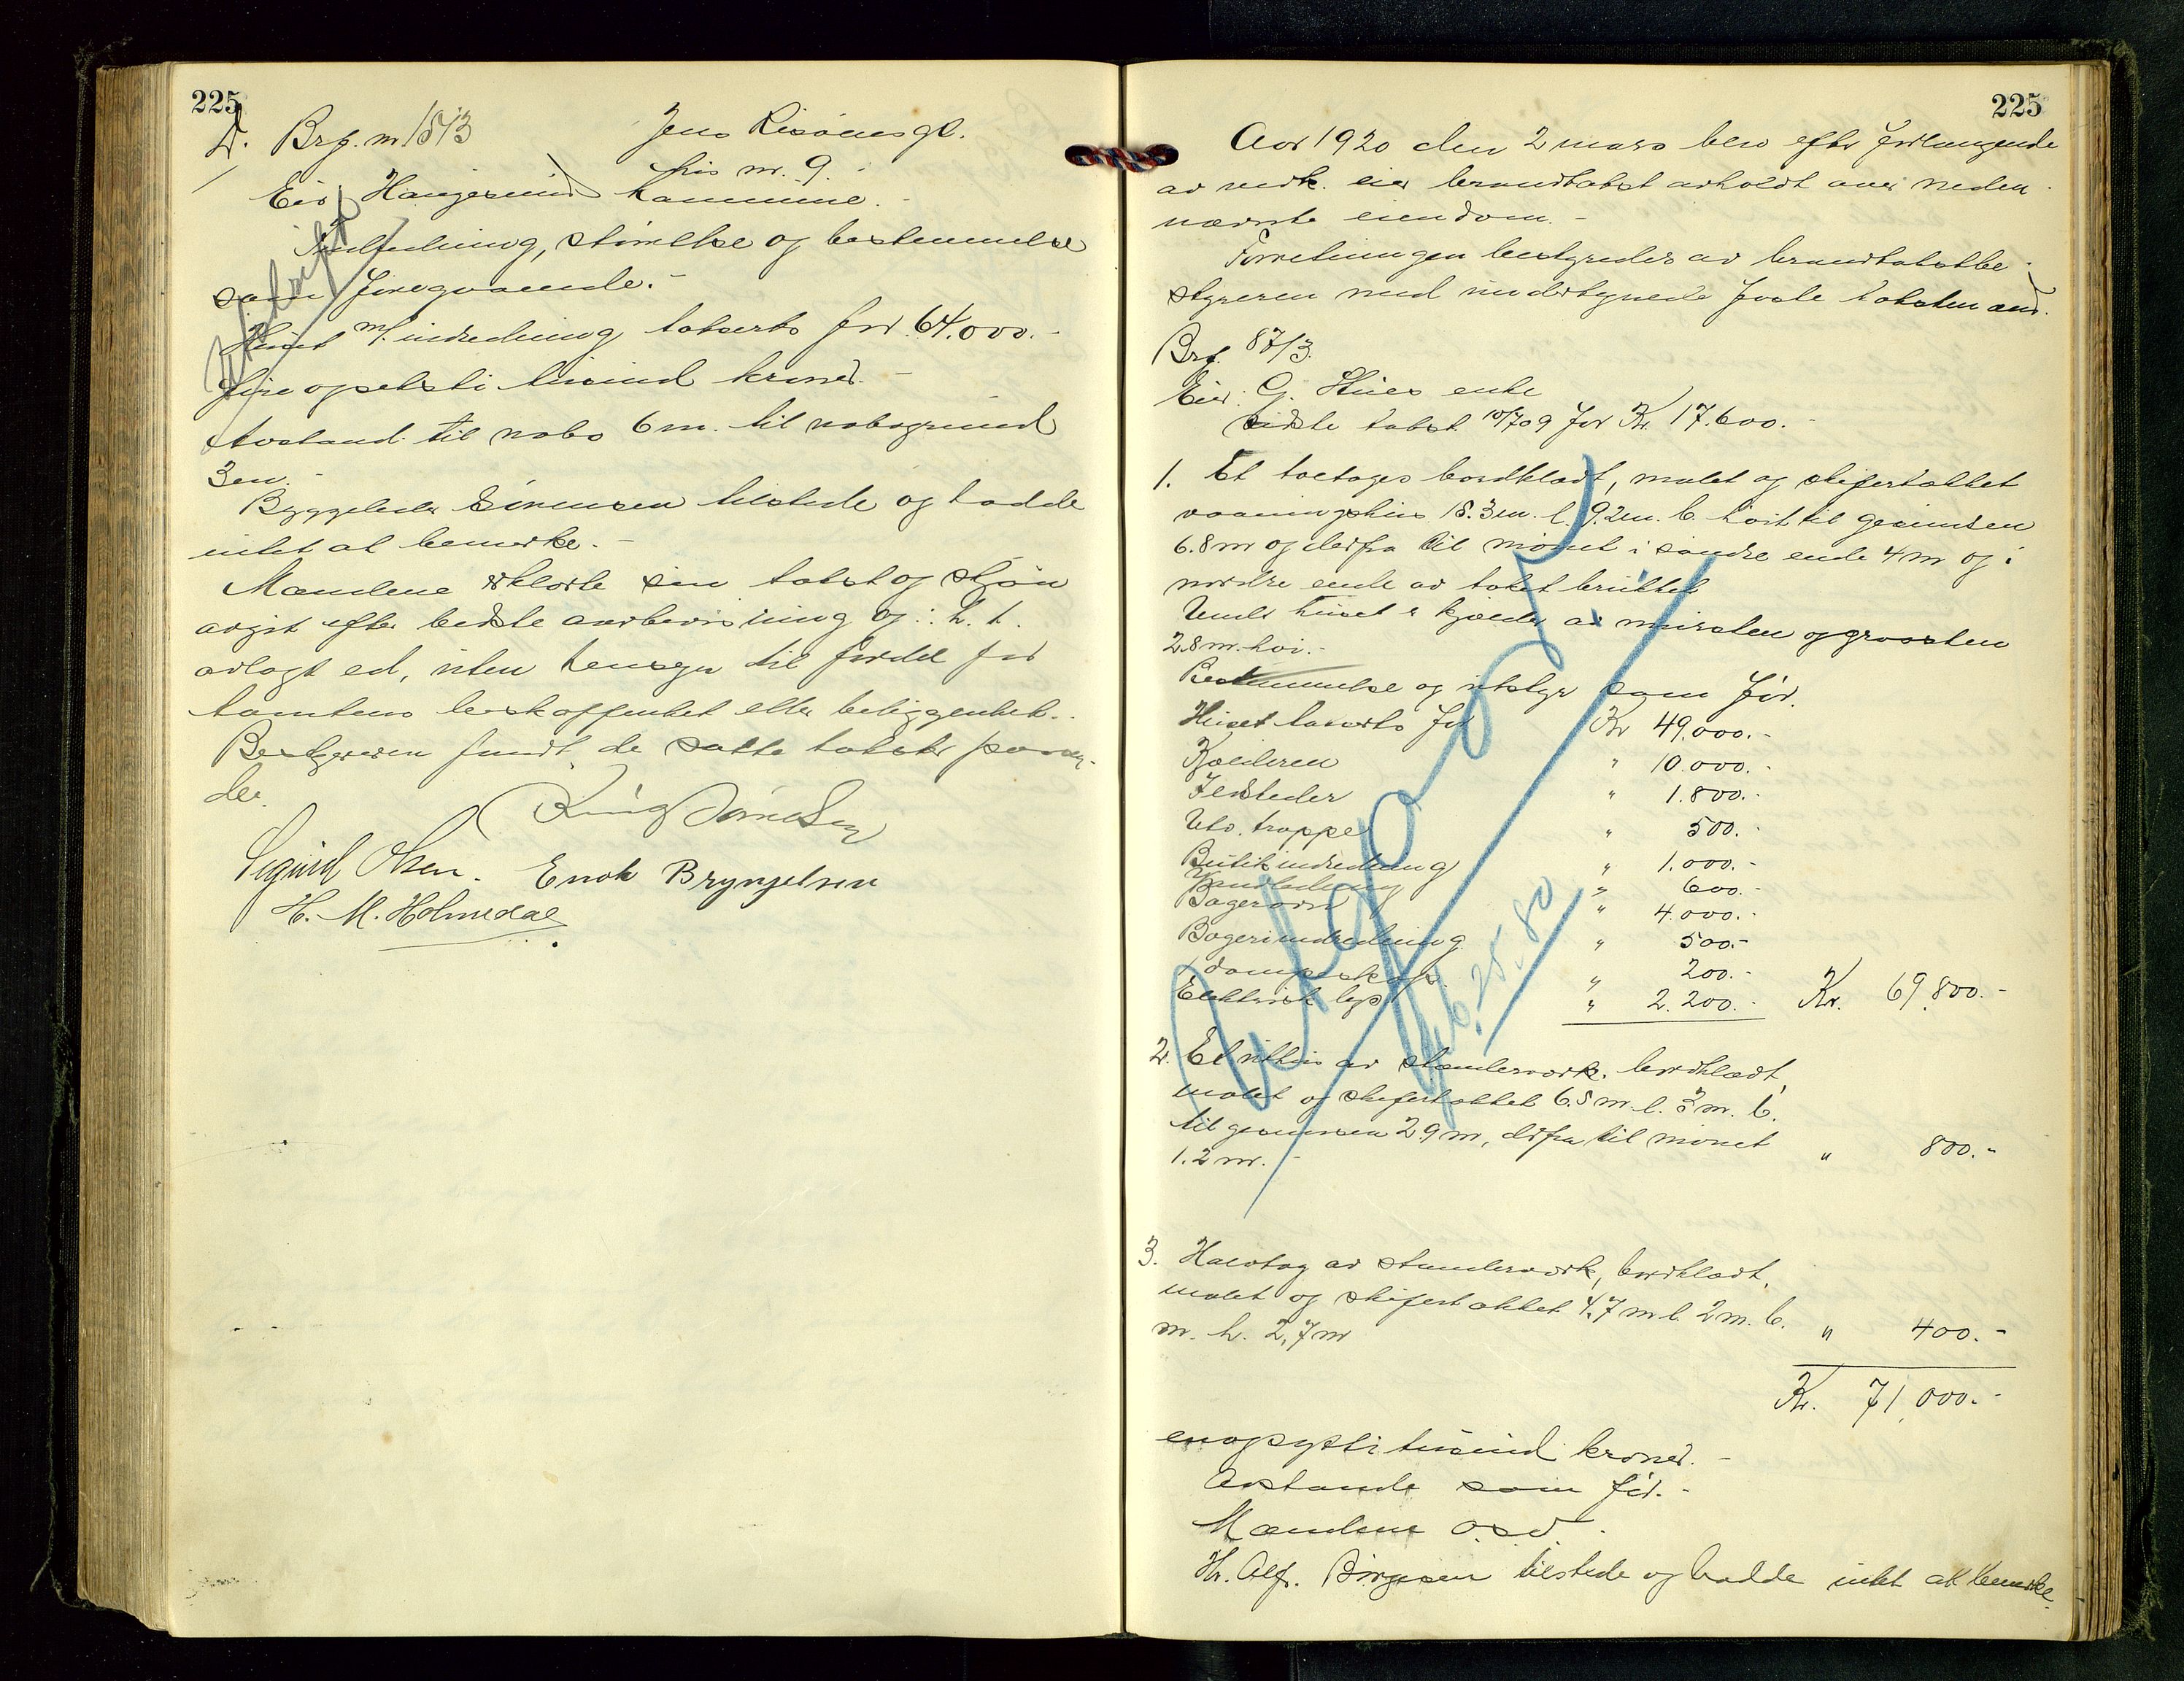 225
D. Brf. nr 1573 Jens Risøensgt.
hus nr. 9.
Eier Haugesund Kommune.
Indledning, størrelse og bestemmelse
som foregaaende.
Huset m/ indredning takserts for 64.000.-
fire og seksti tusind kroner.-
Avstand til nabo 6 m. til nabogrund
3 m.-
Byggeleder Sørensen tilstede og hadde
intet at bemerke.-
Mændene erklærte sin takst og skjøn
avgit efter bedste overbevisning og i h. t.
avlagt ed, uten hensyn til fordel for
tomtens beskaffenhet eller beliggenhet.-
Bestyreren fandt de satte takster passen-
de.
Sigurd Olsen. Enok Bryngelsen
H. M. Holmedal
225
Aar 1920 den 2 mars blev efter forlangende
av vedk. eier brandtakst avholdt over neden-
nævnte eiendom.-
Forretningen bestyredes av brandtakstbe-
styreren med undertegnede faste takstmænd.
Brf. 87/3.
Eier: G. Hues enke
Sidste takst 10/7 09 for Kr. 17.600.-
1. Et toetages bordklædt, malet og skifertækket
vaaningshus 18.3 m. l. 9.2 m. b. høit til gesimsen
6.8 m og derfra til mønet i søndre ende 4 m og i
nordre ende av taket bruttet
Under huset er kjælder av mursten og graasten
2.8 m. høi.-
Bestemmelse og utstyr som før.
Huset takserts for Kr 49.000.-
Kjælderen " 10.000.-
Ildsteder " 1.800.-
Utv. trappe " 500.-
Butikindredning " 1.000.-
Vandledning " 600.-
Bagerovn " 4.000.-
Bageriindredning " 500.-
dampskap. " 200.-
Elektrisk lys " 2.200.- Kr. 69.800.-
2. Et uthus av stenderverk, bordklædt,
malet og skifertækket 6.5 m. l. 3 m. b.
til gesimsen 2.9 m, derfra til mønet
1.2 m.- " 800.-
3. Halvtag av stenderverk, bordklædt,
malet og skifertækket 4.7 m l. 2 m. b.
m. h. 2,7 m " 400.-
Kr. 71.000.-
en og sytti tusind kroner.-
Avstande som før.-
Mændene o.s.v.-
Hr. Alf. Birgesen tilstede og hadde intet at bemerke.